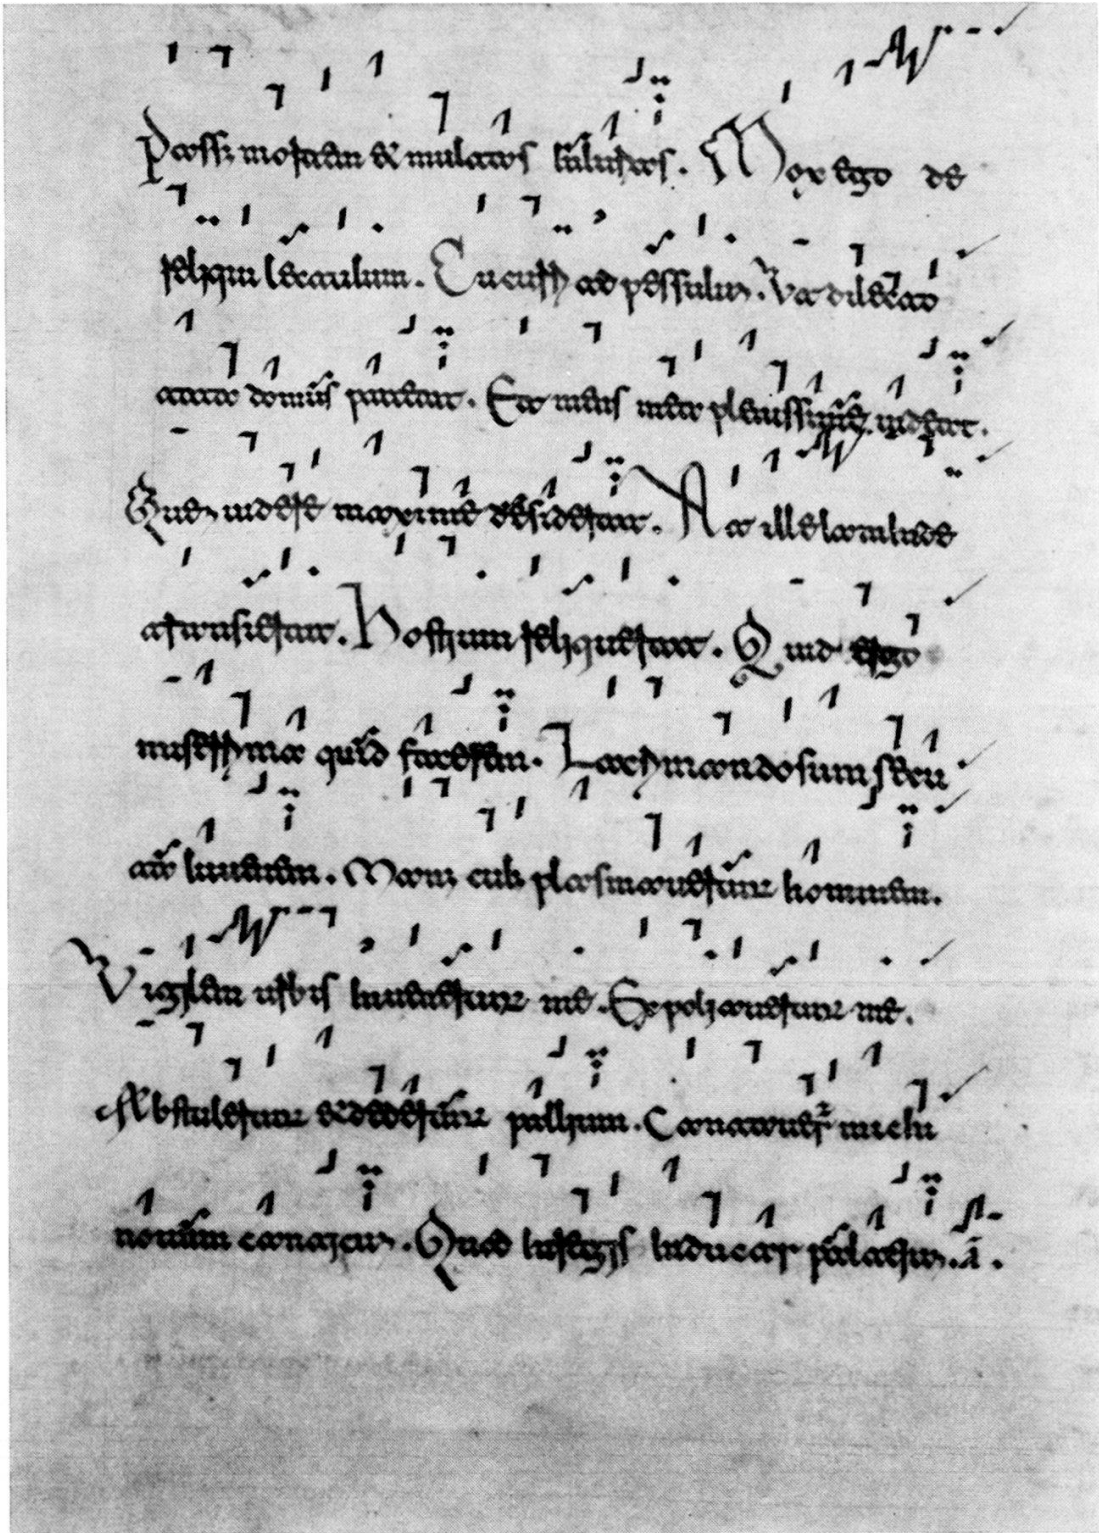 Passus mortem & multas iniurias. Mox ego de
reliqui lectulum. Cucurri ad pessulum. Ut dilecto
tota domus pateat. Et mens mea plenissime uideat.
Quem uidere maxime desiderat. At ille iam inde
transierat. Hostium reliquerat. Quid ergo
miserrima quid facerem. Lacrymando sum secu
ta iuuenem. Manus cuius plasmauerunt hominem.
Vigiles urbis inuenerunt me. Expoliauerunt me.
Abstulerunt & dederunt pallium. Cantauerunt michi
nouum canticum. Quo in regis inducar palatium. A.